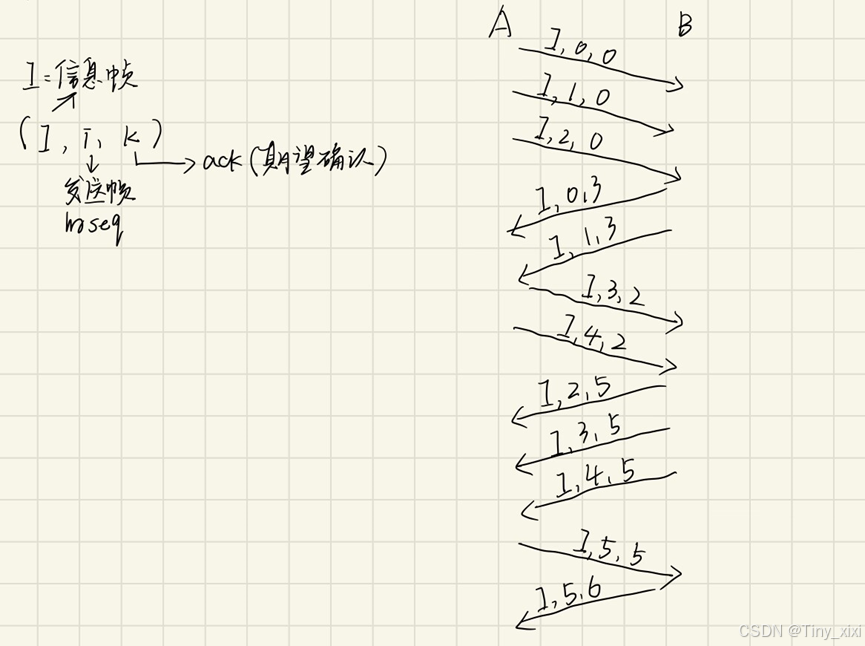 I=信息帧
(I, i, k)
ack(期望确认)
发送帧
的seq
A B
I,0,0
I,1,0
I,2,0
I,0,3
I,1,3
I,3,2
I,4,2
I,2,5
I,3,5
I,4,5
I,5,5
I,5,6
CSDN @Tiny_xixi